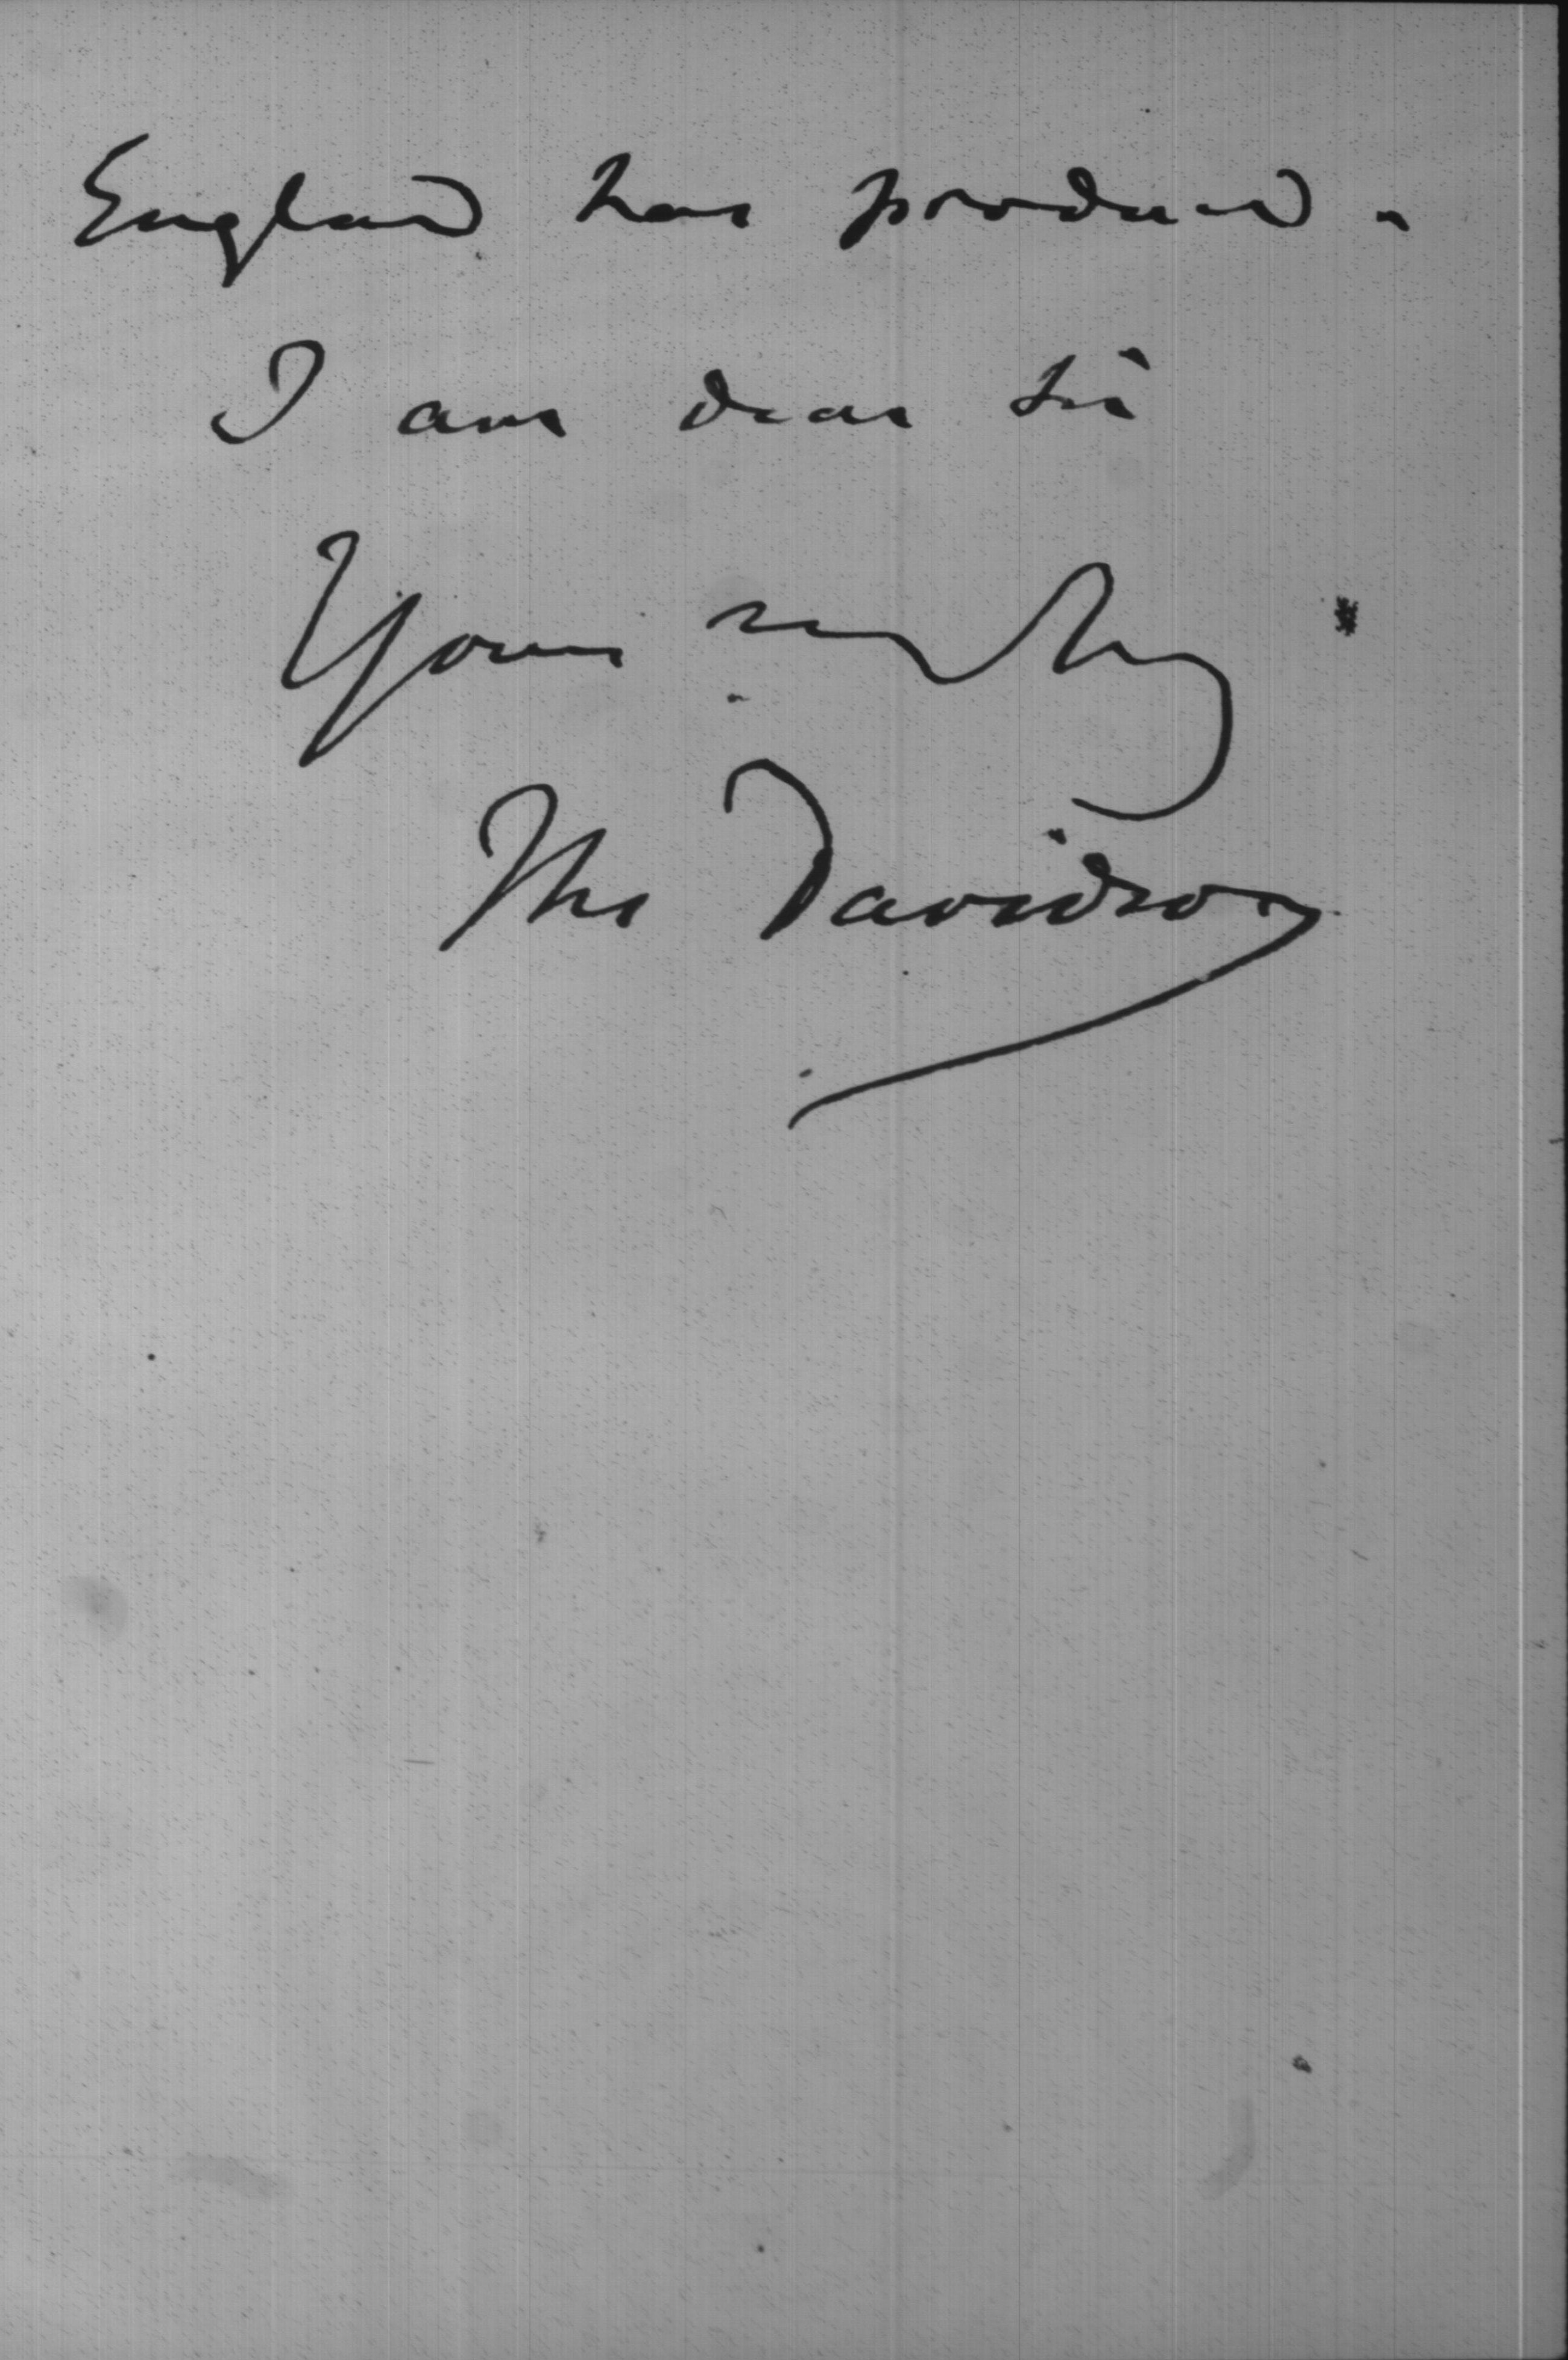 England has produced.
I am dear Sir
Yours
Tho Davidson